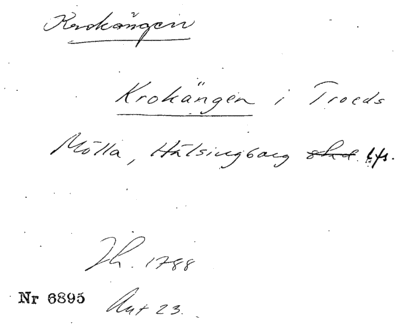 Krokängen
Krokängen i Troeds
Mölla, Hälsingborg lfs.
Jh. 1788
Nr 6895
Akt 23.